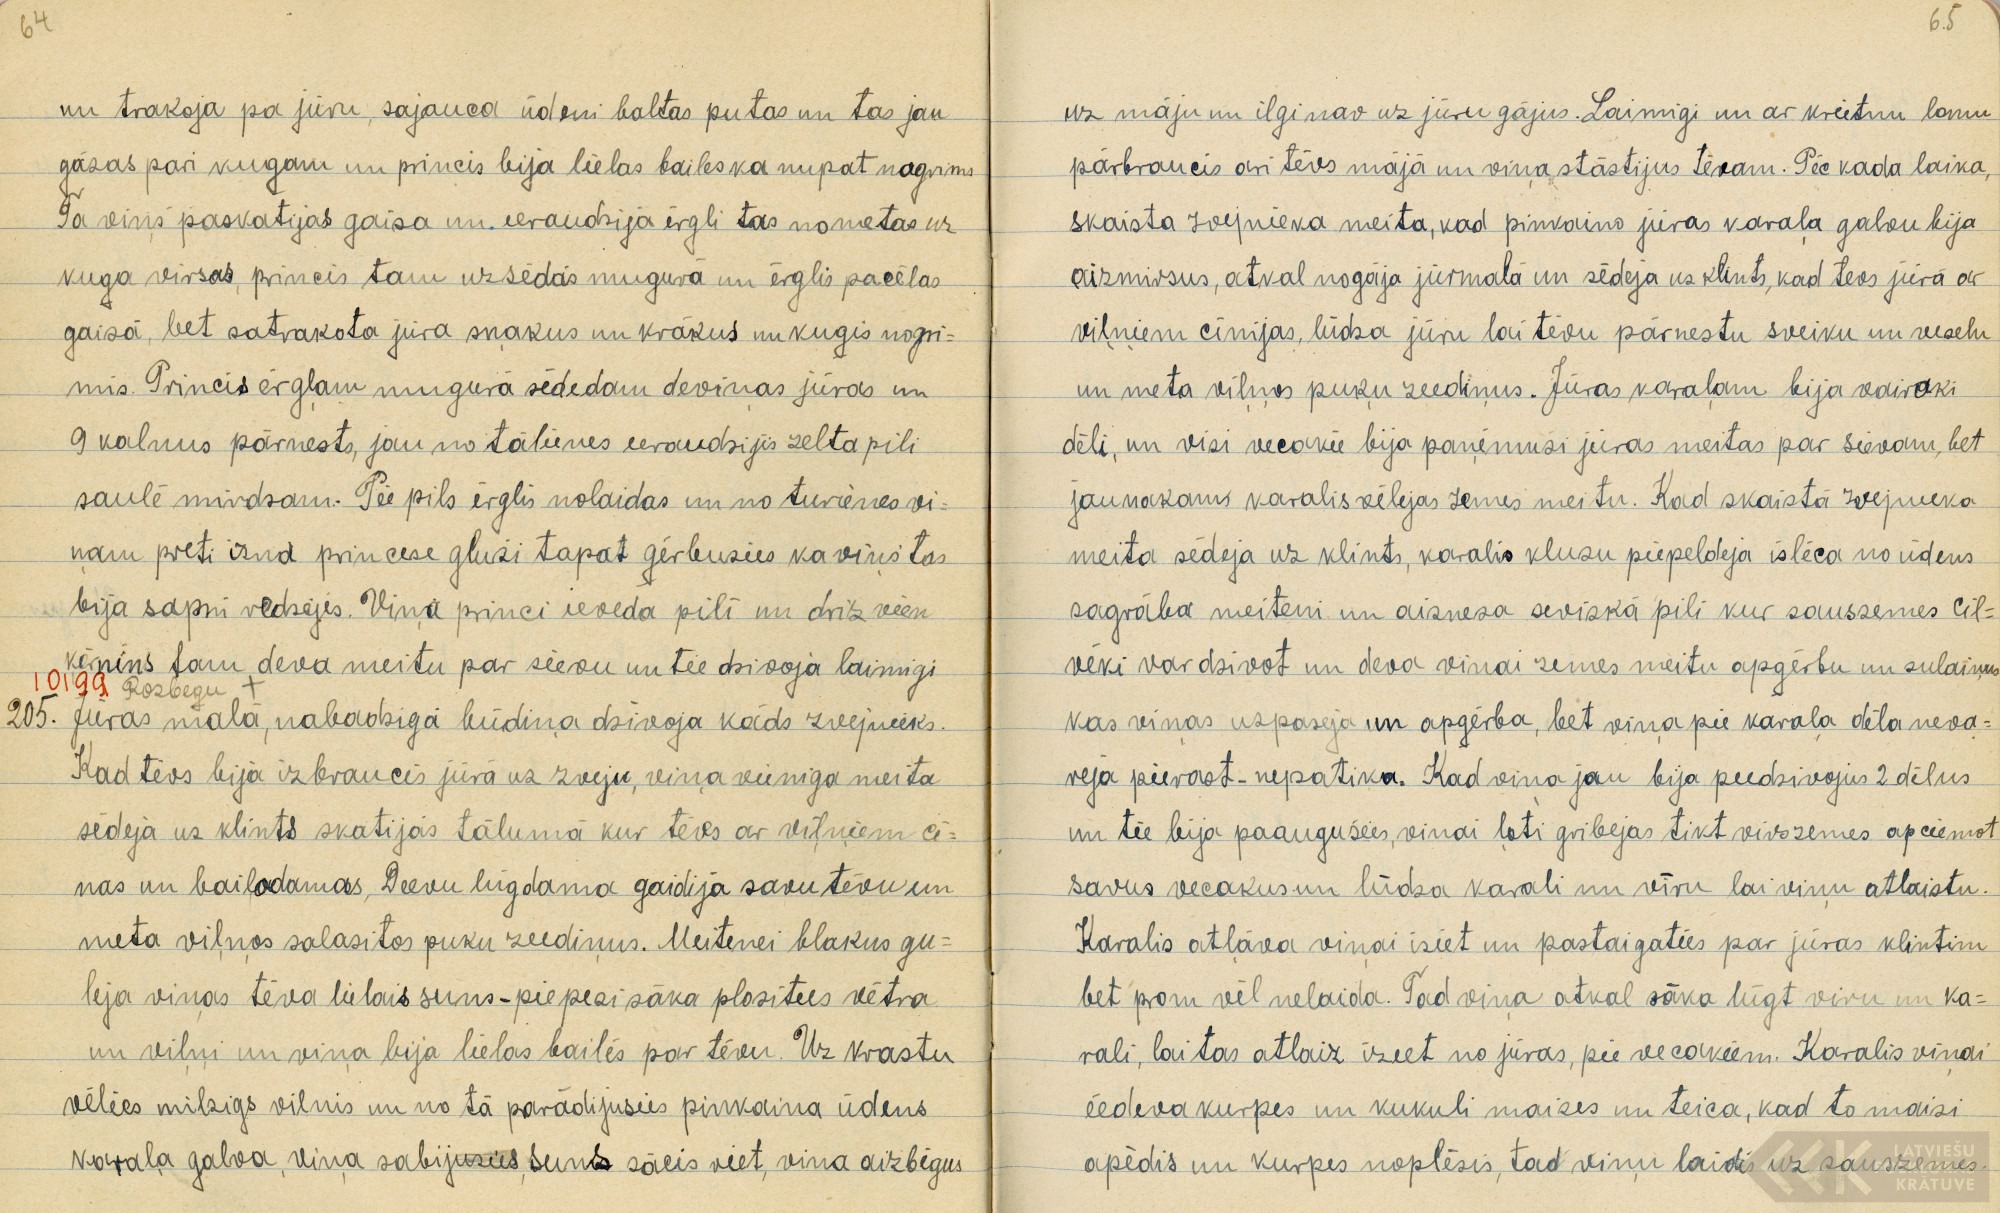 64
un trakoja pa jūru, sajauca ūdeni baltas putas un tas jau
gāzas pari kugam un princis bija lielas bailes ka nupat nogrims
Ta viņš paskatijas gaisa un eeraudsija ērgli tas nometas uz
kuga virsas, princis tam uzsēdās mugurā un ērglis pacēlas
gaisā, bet satrakota jūra snakus un krākus un kugis nogri=
mis. Princis ērgļam mugurā sēdedam deviņas jūras un
9 kalnus pārnests, jau no tālienes eeraudsijis zelta pili
saulē mirdsam. Pie pils ērglis nolaidas un no turienes vi=
ņam preti iznā princese gluži tapat gērbusies ka viņš tas
bija sapni redsejis. Viņa princi ieveda pilī un driz vien
kēniņs tam deva meitu par sievu un tie dsivoja laimigi
10199 Rozbegu +
205. Jūras malā, nabadsigā būdiņa dsīvoja kāds zvejneeks.
Kad tēvs bija izbraucis jūrā uz zveju, viņa vieniga meita
sēdeja uz klints skatijās tālumā kur tēvs ar viļņiem ci=
nas un bailodamas, Deevu lūgdama gaidija savu tēvu un
meta viļņos salasitos puķu zeediņus. Meitenei blakus gu=
leja viņas tēva lielais suns - piepesi sāka plositees vētra
un viļņi un viņa bija lielas bailēs par tēvu. Uz krastu
vēlies milzigs vilnis un no tā parādijusies pinkaina ūdens
karaļa galva, viņa sabijusies, suns sācis riet, viņa aizbēgus
65
uz māju un ilgi nav uz jūru gājus. Laimigi un ar krietnu lomu
pārbraucis ari tēvs mājā un viņa stāstijus tēvam. Pēc kada laika,
skaista zvejnieka meita, kad pinkaino jūras karaļa galvu bija
aizmirsus, atkal nogāja jūrmalā un sēdeja uz klints, kad tevs jūrā ar
viļņiem cīnijas, lūdsa jūru lai tēvu pārnestu sveiku un veselu
un meta viļņos puķu zeediņus. Jūras karaļam bija vairaki
dēli, un visi vecakie bija paņēmusi jūras meitas par sievam, bet
jaunakams karalis vēlejas zemes meitu. Kad skaistā zvejneeka
meita sēdeja uz klints, karalis klusu piepeldeja islēca no ūdens
sagrāba meiteni un aisnesa seviskā pili kur sauszemes cil=
vēki var dsivot un deva viņai zemes meitu apgērbu un sulaiņus
kas viņas uzpaseja un apgērba, bet viņa pie karaļa dēla neva=
reja pierast - nepatika. Kad viņa jau bija peedsivojus 2 dēlus
un tie bija paaugušies, viņai ļoti gribejas tikt virszemes apciemot
savus vecakus un lūdsa karali un vīru lai viņu atlaistu.
Karalis atļāva viņai isiet un pastaigaties par jūras klintim
bet prom vēl nelaida. Tad viņa atkal sāka lūgt viru un ka=
rali, lai tas atlaiz izeet no jūras, pie vecakiem. Karalis viņai
eedeva kurpes un kukuli maizes un teica, kad to maizi
apēdis un kurpes noplēsis, tad viņu laidis uz sauszemes.
LATVIEŠU
KRĀTUVE